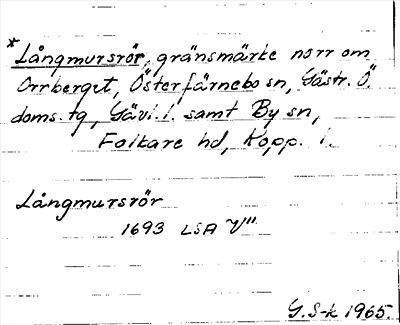 *Långmursrör, gränsmärke norr om
Orrberget, Österfärnebo sn, Gästr. Ö.
doms. tg, Gävl. l. samt By sn,
Folkare hd, Kopp. l.
Långmursrör
1693 LSA V"
G. S-k 1965.